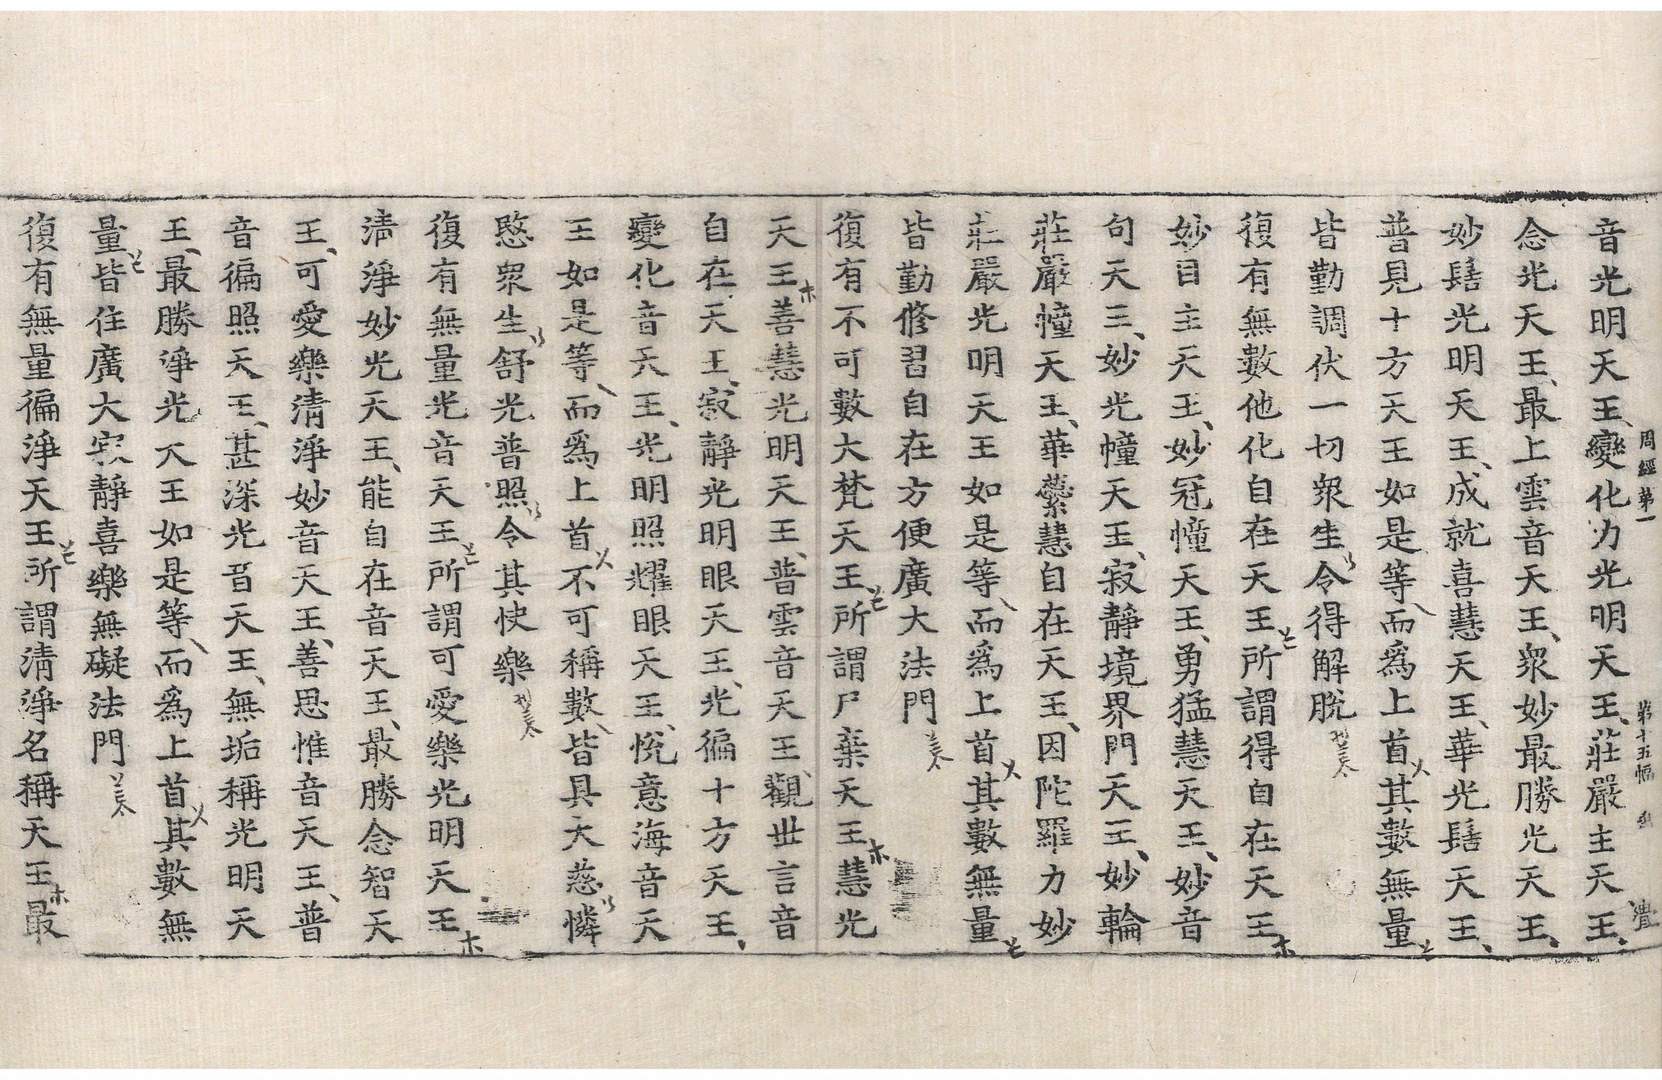 周經第一 第十五幅
音光明天王變化力光明天王莊嚴主天王
念光天王最上雲音天王衆妙最勝光天王
妙髻光明天王成就喜慧天王華光髻天王
普見十方天王如是等而爲上首其數無量
皆勤調伏一切衆生令得解脫
復有無數他化自在天王所謂得自在天王
妙目主天王妙冠幢天王勇猛慧天王妙音
句天王妙光幢天王寂靜境界門天王妙輪
莊嚴幢天王華蘂慧自在天王因陀羅力妙
莊嚴光明天王如是等而爲上首其數無量
皆勤修習自在方便廣大法門
復有不可數大梵天王所謂尸棄天王慧光
天王善慧光明天王普雲音天王觀世言音
自在天王寂靜光明眼天王光徧十方天王
變化音天王光明照耀眼天王悅意海音天
王如是等而爲上首不可稱數皆具大慈憐
愍衆生舒光普照令其快樂
復有無量光音天王所謂可愛樂光明天王
清淨妙光天王能自在音天王最勝念智天
王可愛樂清淨妙音天王善思惟音天王普
音徧照天王甚深光音天王無垢稱光明天
王最勝淨光天王如是等而爲上首其數無
量皆住廣大寂靜喜樂無礙法門
復有無量徧淨天王所謂清淨名稱天王最